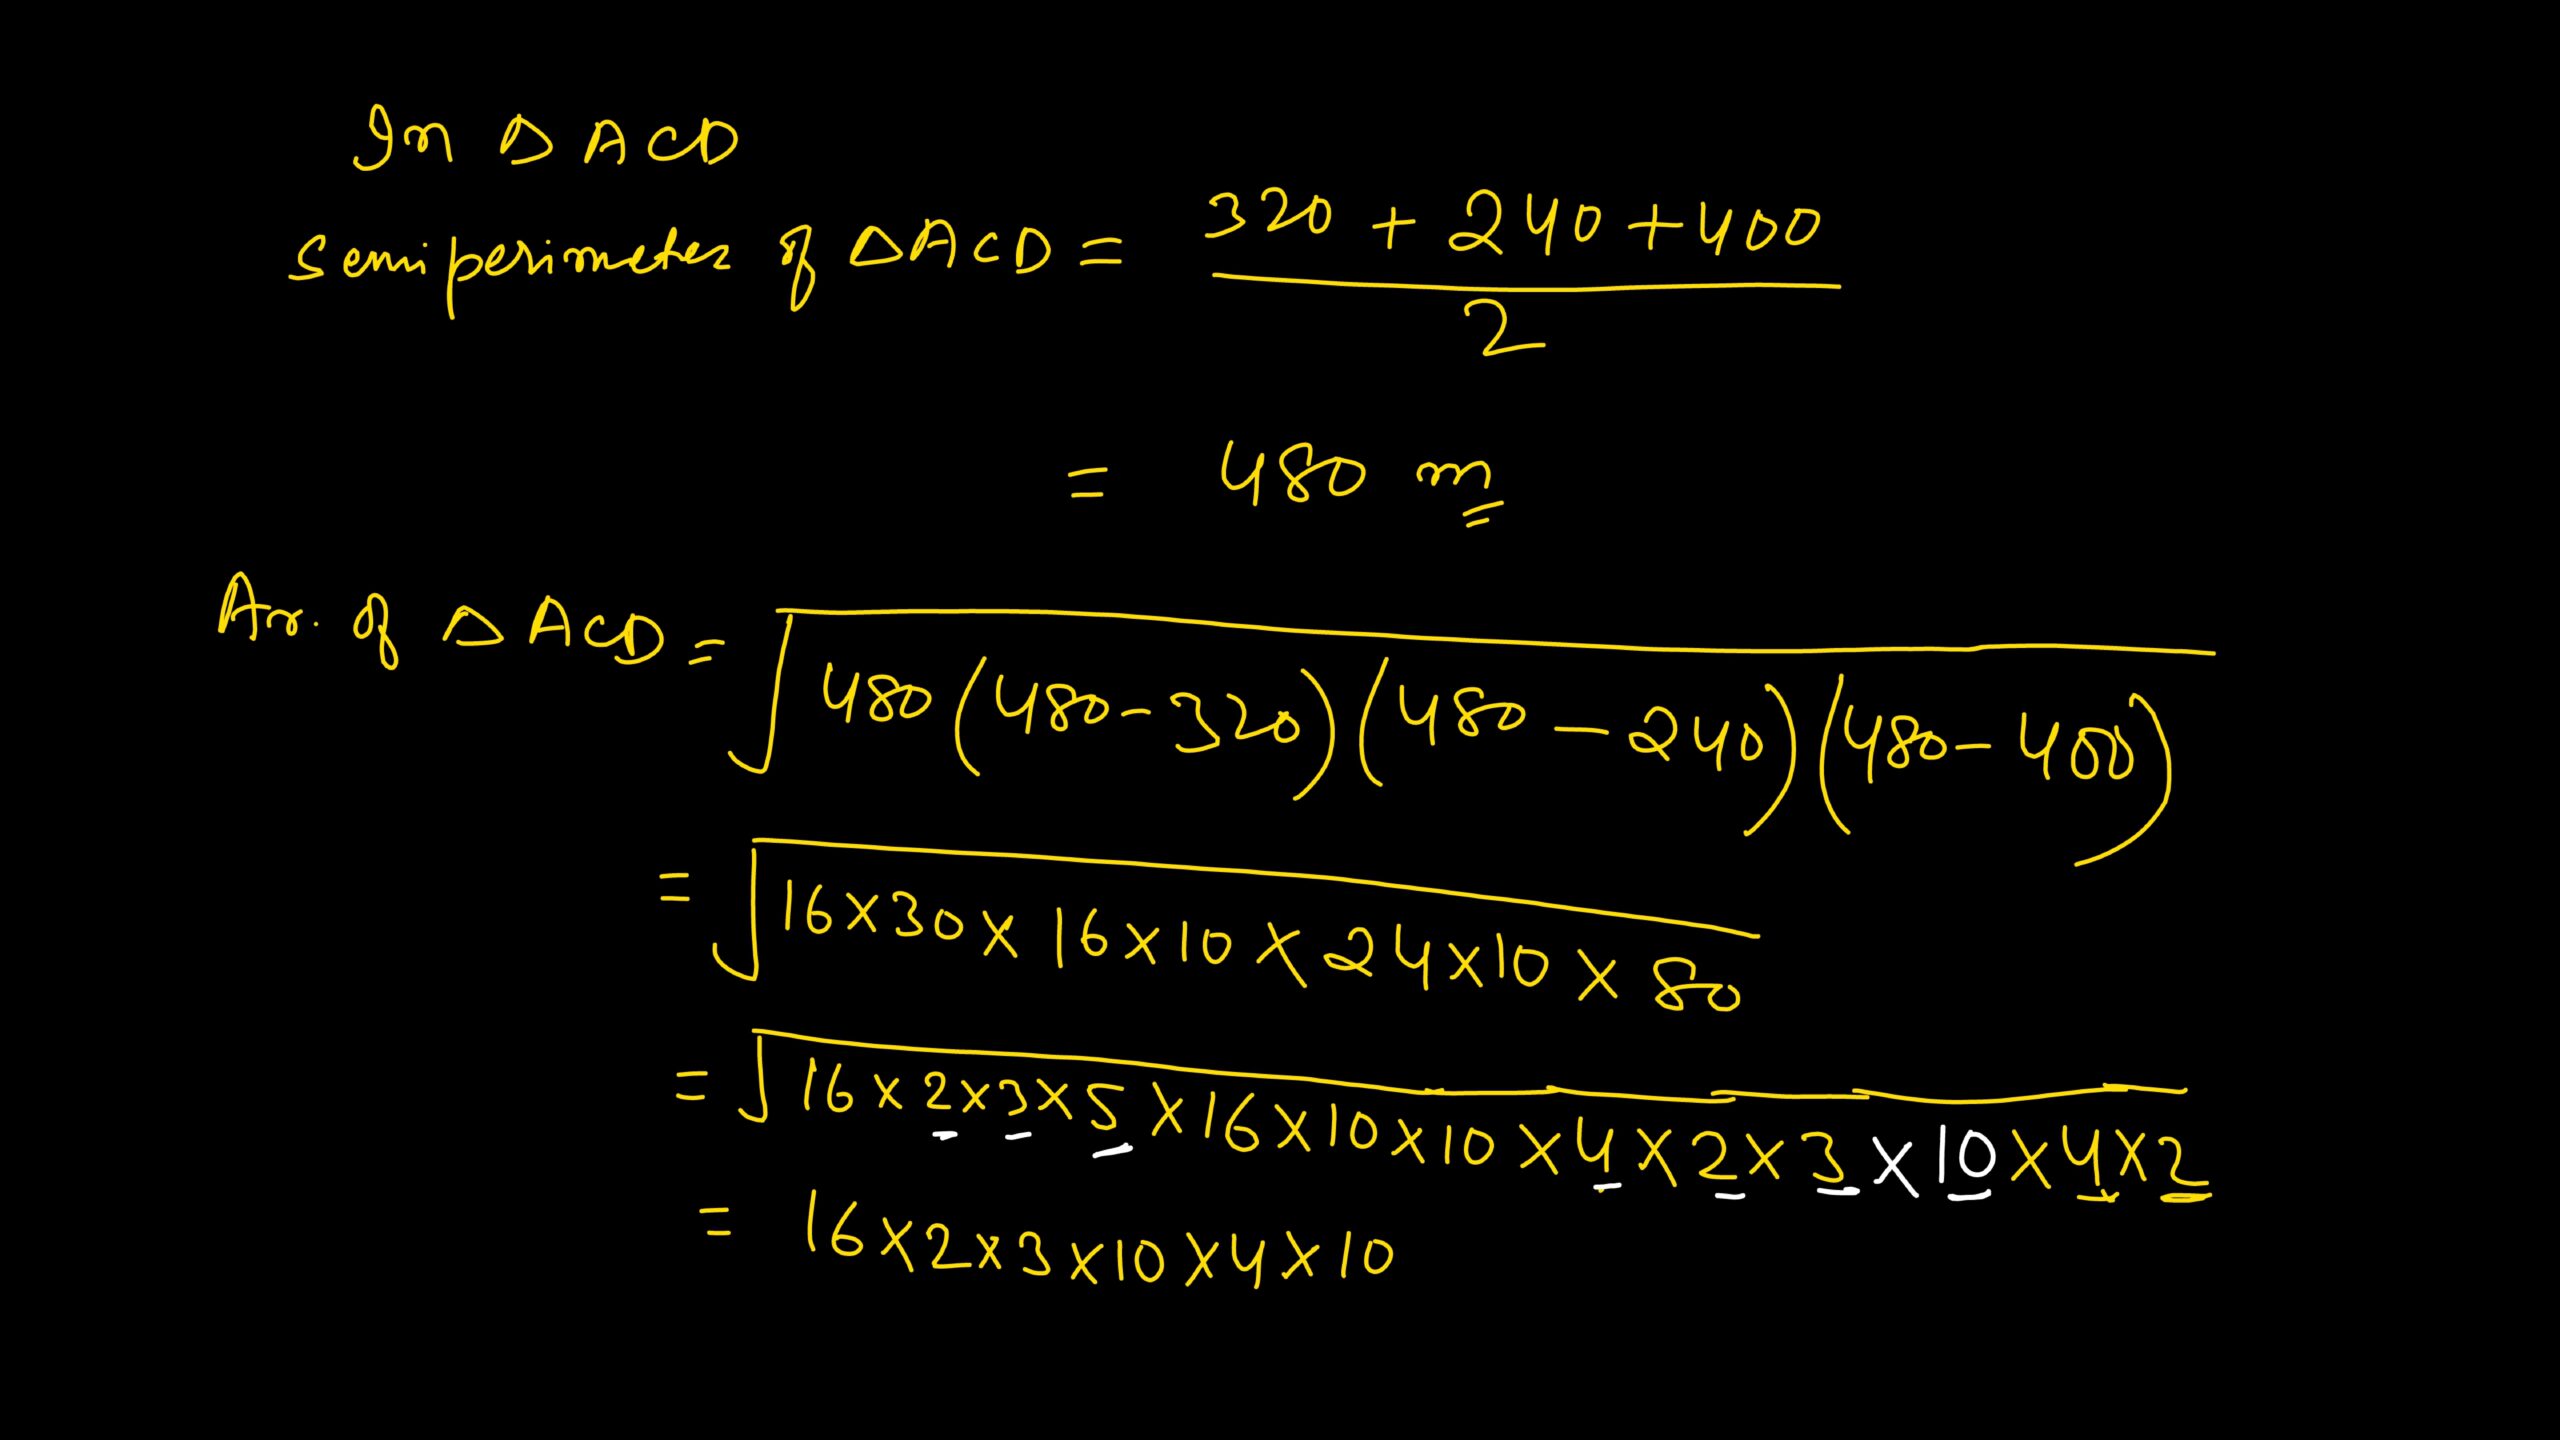 In Δ ACD
Semiperimeter of ΔACD = (320 + 240 + 400) / 2
= 480 m
Ar. of Δ ACD = √480(480-320)(480-240)(480-400)
= √16×30×16×10×24×10×80
= √16×2×3×5×16×10×10×4×2×3×10×4×2
= 16×2×3×10×4×10